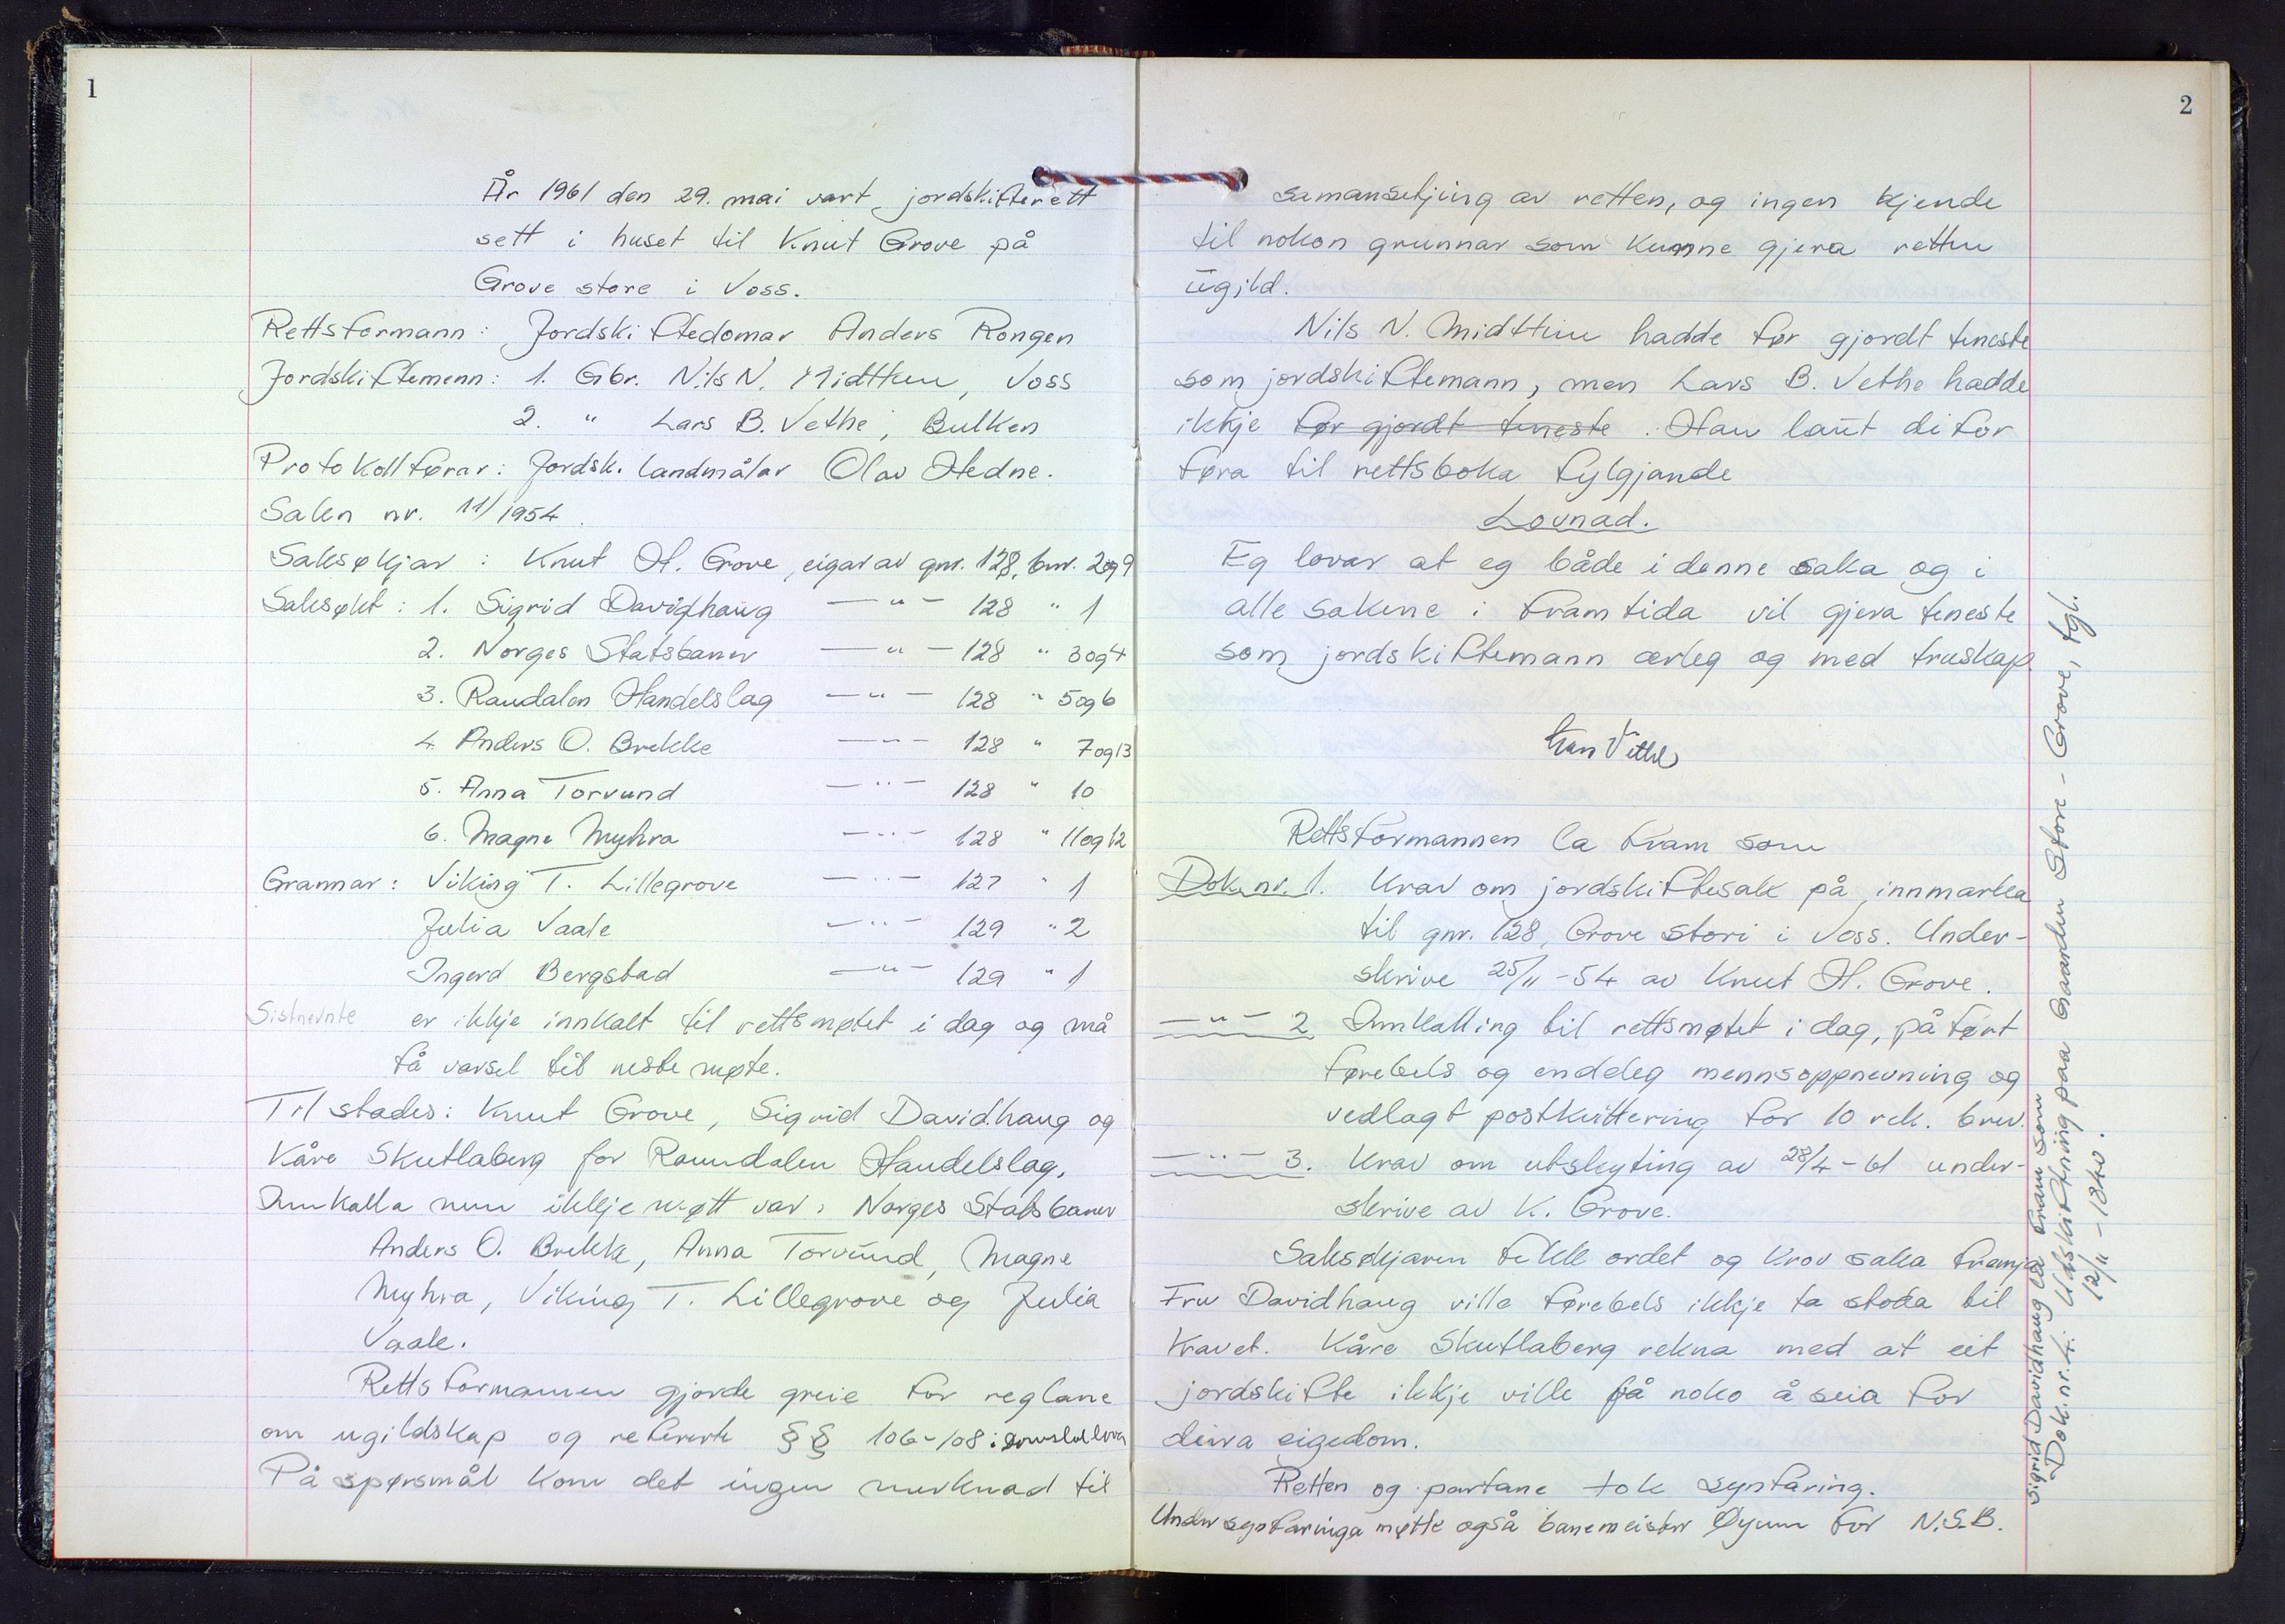 1
År 1961 den 29. mai vart jordskifterett
sett i huset til Knut Grove på
Grove store i Voss.
Rettsformann: Jordskiftedomar Anders Rongen
Jordskiftemenn: 1. Gbr. Nils N. Midttun, Voss
2. " Lars B. Vethe, Bulken
Protokollførar: Jordsk. landmålar Olav Hedne.
Saken nr. 11/1954.
Saksøkjar: Knut H. Grove, eigar av gnr. 128, bnr. 2 og 9
Saksøkt: 1. Sigrid Davidhaug —"— 128 " 1
2. Norges Statsbaner —"— 128 " 3 og 4
3. Raudalen Handelslag —"— 128 " 5 og 6
4. Anders O. Brekke —"— 128 " 7 og 13
5. Anna Torvund —"— 128 " 10
6. Magne Myhra —"— 128 " 11 og 12
Grannar: Viking T. Lillegrove —"— 127 " 1
Julia Vaale —"— 129 " 2
Ingerd Bergstad —"— 129 " 1
Sistnevnte er ikkje innkalt til rettsmøtet i dag og må
få varsel til neste møte.
Til stades: Knut Grove, Sigrid Davidhaug og
Kåre Skutlaberg for Raundalen Handelslag.
Innkalla men ikkje møtt var: Norges Statsbaner
Anders O. Brekke, Anna Torvund, Magne
Myhra, Viking T. Lillegrove og Julia
Vaale.
Rettsformannen gjorde greie for reglane
om ugildskap og refererte §§ 106-108 i domstollova
På spørsmål kom det ingen merknad til
2
samansetjing av retten, og ingen kjende
til nokon grunnar som kunne gjera retten
ugild.
Nils N. Midttun hadde før gjordt teneste
som jordskiftemann, men Lars B. Vethe hadde
ikkje før gjordt teneste. Han laut difor
føra til rettsboka fylgjande
Lovnad.
Eg lovar at eg både i denne saka og i
alle sakene i framtida vil gjera teneste
som jordskiftemann ærleg og med truskap.
Lars Vethe
Rettsformannen la fram som
Dok. nr. 1. Krav om jordskiftesak på innmarka
til gnr. 128, Grove stori i Voss. Under-
skrive 25/11-54 av Knut H. Grove.
—"— 2 Innkalling til rettsmøtet i dag, påført
førebels og enddeg mennsoppnevning og
vedlagt postkvittering for 10 rek. brev.
—"— 3. Krav om utskyting av 28/4-61 under-
skrive av K. Grove.
Saksøkjaren fekk ordet og krov saka fremja
Fru Davidhaug ville førebels ikkje ta stoda til
kravet. Kåre Skutlaberg rekna med at eit
jordskifte ikkje ville få noko å seia for
deira eigedom.
Retten og partane tok synfaring.
Under synfaringa møtte også banemeister Øyum for N.S.B.
Sigrid Davidhaug la fram som
Dok. nr. 4: Udskiftning paa Gaarden Store-Grove, tgl.
12/11-1840.